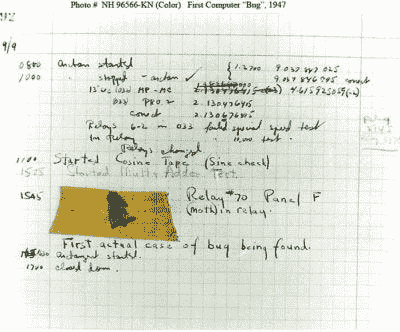 Photo # NH 96566-KN (Color) First Computer "Bug", 1947
9/9
0800 Antan started
1000 " stopped - antan ✓ { 1.2700 9.037 847 025
9.037 846 995 correct
13"uc (032) MP-MC 2.130476415 (-3) 4.615925059(-2)
(033) PRO 2 2.130476415
correct 2.130676415
Relays 6-2 in 033 failed special speed test
in Relay " 10,000 test.
Relays changed
1100 Started Cosine Tape (Sine check)
1525 Started Multy Adder Test.
1545 Relay #70 Panel F
(Moth) in relay.
First actual case of bug being found.
antangent started.
1700 closed down.